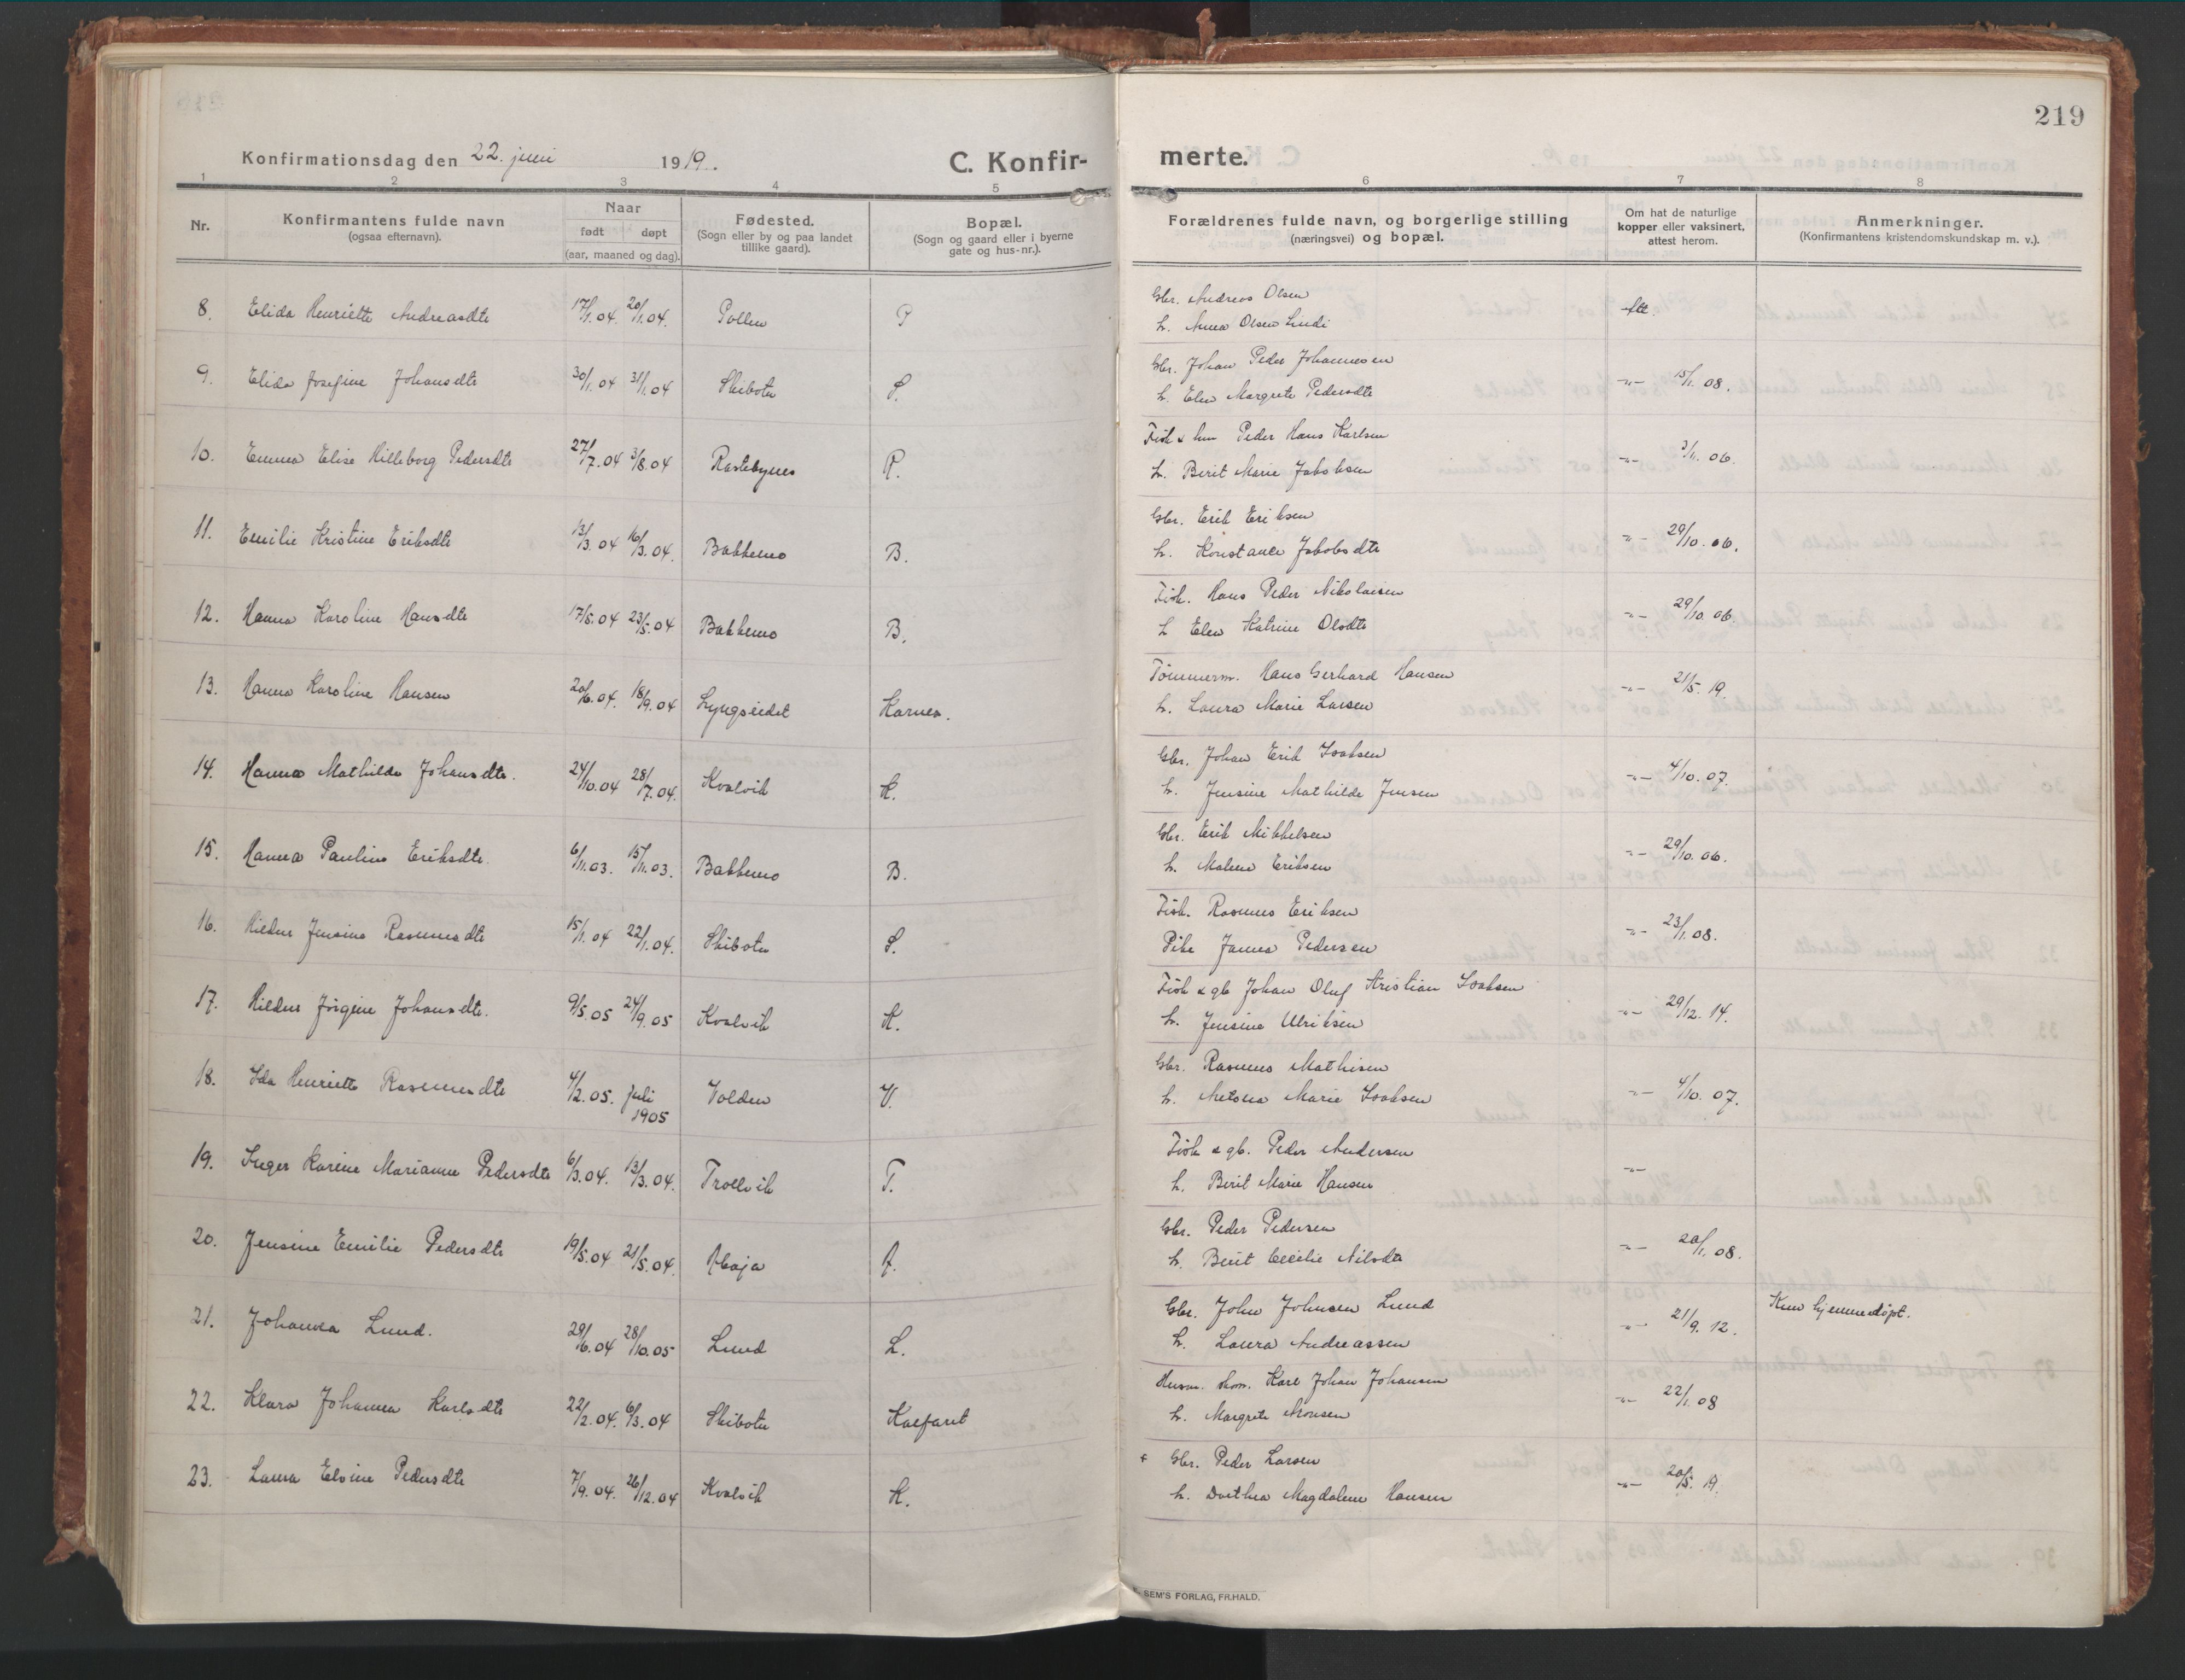 219
Konfirmationsdag den 22. juni 1919.
C. Konfirmerte.
1 2 3 4 5 6 7 8
Nr. Konfirmantens fulde navn (ogsaa efternavn). Naar født døpt (aar, maaned og dag). Fødested. (Sogn eller by og paa landet tillike gaard). Bopæl. (Sogn og gaard eller i byerne gate og hus-nr.). Forældrenes fulde navn, og borgerlige stilling (næringsvei) og bopæl. Om hat de naturlige kopper eller vaksinert, attest herom. Anmerkninger. (Konfirmantens kristendomskundskap m. v.).
8. Elida Henriette Andreasdtr 17/1.04. 20/1.04. Pollen P Gbr. Andreas Olsen
h. Anna Olsen Lindi
9. Elida Josefine Johansdtr 30/1.04 31/1.04 Skibotn S. Gbr. Johan Peder Johannesen -"- 15/1.08.
h. Elen Margrete Pedersdtr
10. Emma Elise Hilleborg Pedersdtr 27/7.04 3/8.04 Rastebynes R. Fisk & hm Peder Hans Karlsen -"- 3/11.06.
h. Berit Marie Jakobsen
11. Emilie Kristine Eriksdtr 13/3.04 16/3.04. Bakkemo B. Gbr. Erik Eriksen -"- 29/10.06.
h. Konstance Jakobsdtr
12. Hanna Karoline Hansdtr 17/5.04 23/5.04 Bakkemo B. Fisk. Hans Peder Nikolaisen -"- 29/10.06.
h Elen Katrine Olsdtr
13. Hanna Karoline Hansen 20/6.04. 18/9.04 Lyngseidet Karnes. Tømmerm. Hans Gerhard Hansen -"- 21/5.19.
h. Laura Marie Larsen
14. Hanna Mathilde Johansdtr. 24/10.04 28/7.04. Kvalvik K. Gbr. Johan Erik Isaksen -"- 4/10.07.
h. Jensine Mathilde Jensen
15. Hanna Pauline Eriksdtr. 6/11.03. 15/11.03. Bakkemo B. Gbr. Erik Mikkelsen -"- 29/10.06.
h. Malene Eriksen
16. Hildur Jensine Rasmusdtr 15/1.04 22/1.04. Skibotn S. Fisk. Rasmus Eriksen -"- 23/1.08.
Pike Janna Pedersen
17. Hildur Jørgine Johansdtr. 9/5.05 24/9.05 Kvalvik K. Fisk & gb Johan Oluf Kristian Isaksen -"- 29/12.14.
h. Jensine Ulriksen
18. Ida Henriette Rasmusdtr 4/2.05. juli 1905 Volden V. Gbr. Rasmus Mathisen -"- 4/10.07.
h. Marie Isaksen
19. Inger Karine Marianne Pedersdtr 6/3.04. 13/3.04. Trollvik T. Fisk & gb. Peder Andersen -"-
h. Berit Marie Hansen
20. Jensine Emilie Pedersdtr 19/5.04 21/5.04. Aaja A. Gbr. Peder Pedersen -"- 20/1.08.
h. Berit Cecilie Nilsdtr
21. Johanna Lund. 29/6.04 28/10.05 Lund L. Gbr. John Johnsen Lund -"- 21/9.12. Kun hjemmedøpt.
h. Laura Andreassen
22. Klara Johanna Karlsdtr 22/2.04. 6/3.04 Skibotn Kalfaret Karl Johan Johansen -"- 22/1.08
h. Margrete Monsen
23. Laura Elvine Pedersdtr 7/9.04. 26/12.04 Kvalvik K. Gbr. Peder Larsen -"- 20/5.19.
h. Dorthea Magdalene Hansen
SEM'S FORLAG, FR.HALD.